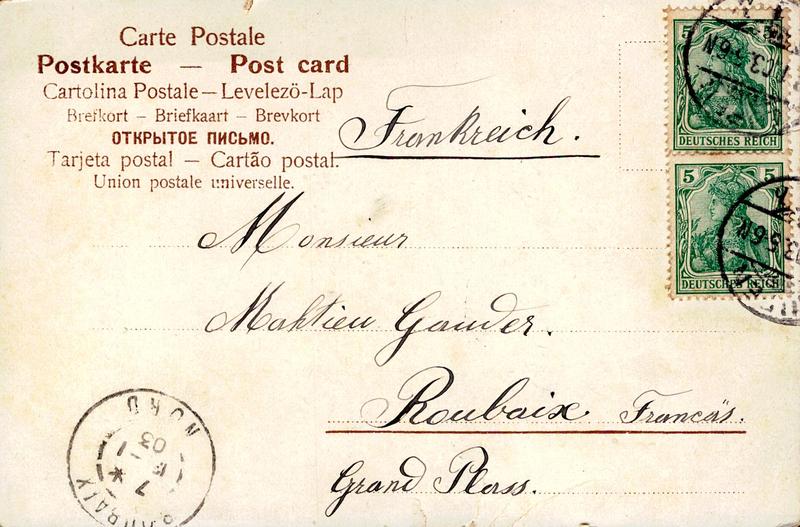 Carte Postale
Postkarte — Post card
Cartolina Postale – Levelezö-Lap
Brefkort – Briefkaart – Brevkort
ОТКРЫТОЕ ПИСЬМО.
Tarjeta postal — Cartão postal.
Union postale universelle.
Frankreich.
5
DEUTSCHES REICH
5 5
DEUTSCHES REICH
Monsieur
Mahtieu Gander.
Roubaix Francäs.
Grand Plass.
NORD
03
7 *
ROUBAIX